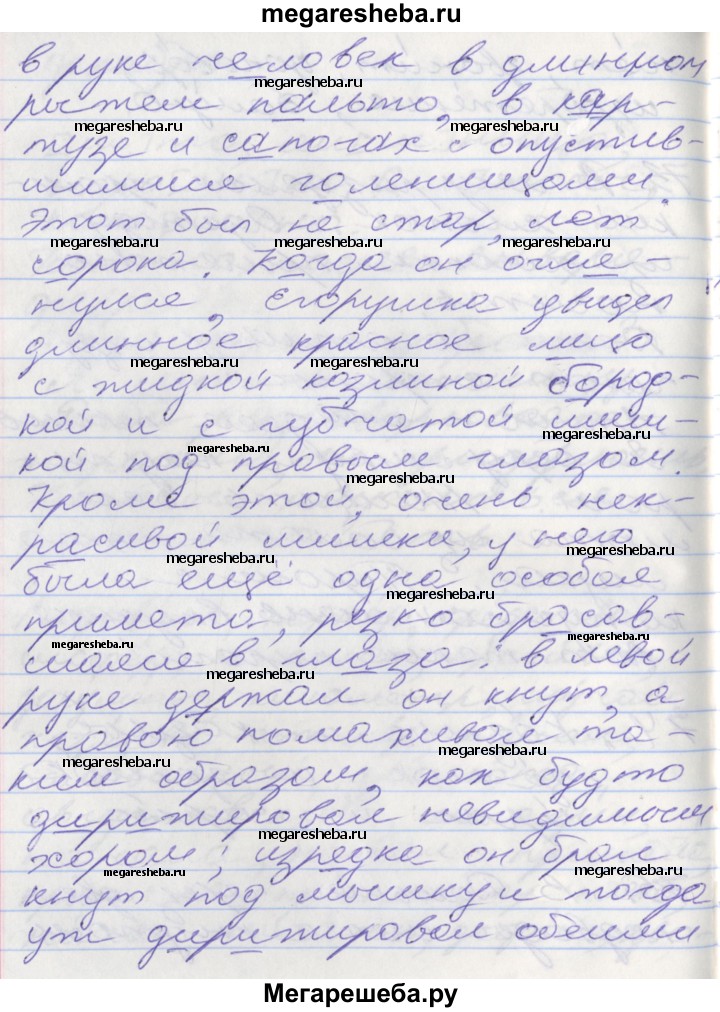 megaresheba.ru
в руке человек в длинном
megaresheba.ru
рыжем пальто, в кар-
megaresheba.ru megaresheba.ru
тузе и сапогах с опустив-
шимися голенищами.
Этот был не стар, лет
megaresheba.ru megaresheba.ru megaresheba.ru
сорока. Когда он огля-
нулся, Егорушка увидел
длинное красное лицо
megaresheba.ru megaresheba.ru
с жидкой козлиной бород-
кой и с губчатой шиш-
megaresheba.ru megaresheba.ru
кой под правым глазом.
megaresheba.ru
Кроме этой, очень нек-
расивой шишки, у него
megaresheba.ru megaresheba.ru
была ещё одна особая
megaresheba.ru
примета, резко бросав-
megaresheba.ru megaresheba.ru
шаяся в глаза: в левой
megaresheba.ru
руке держал он кнут, а
правою помахивал та-
megaresheba.ru megaresheba.ru
ким образом, как будто
дирижировал невидимым
megaresheba.ru
хором; изредка он брал
megaresheba.ru megaresheba.ru
кнут под мышку и тогда
уж дирижировал обеими
Мегарешеба.ру